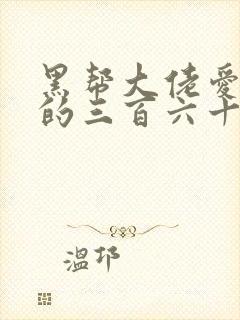 黑帮大佬爱
的三百六十
温邛